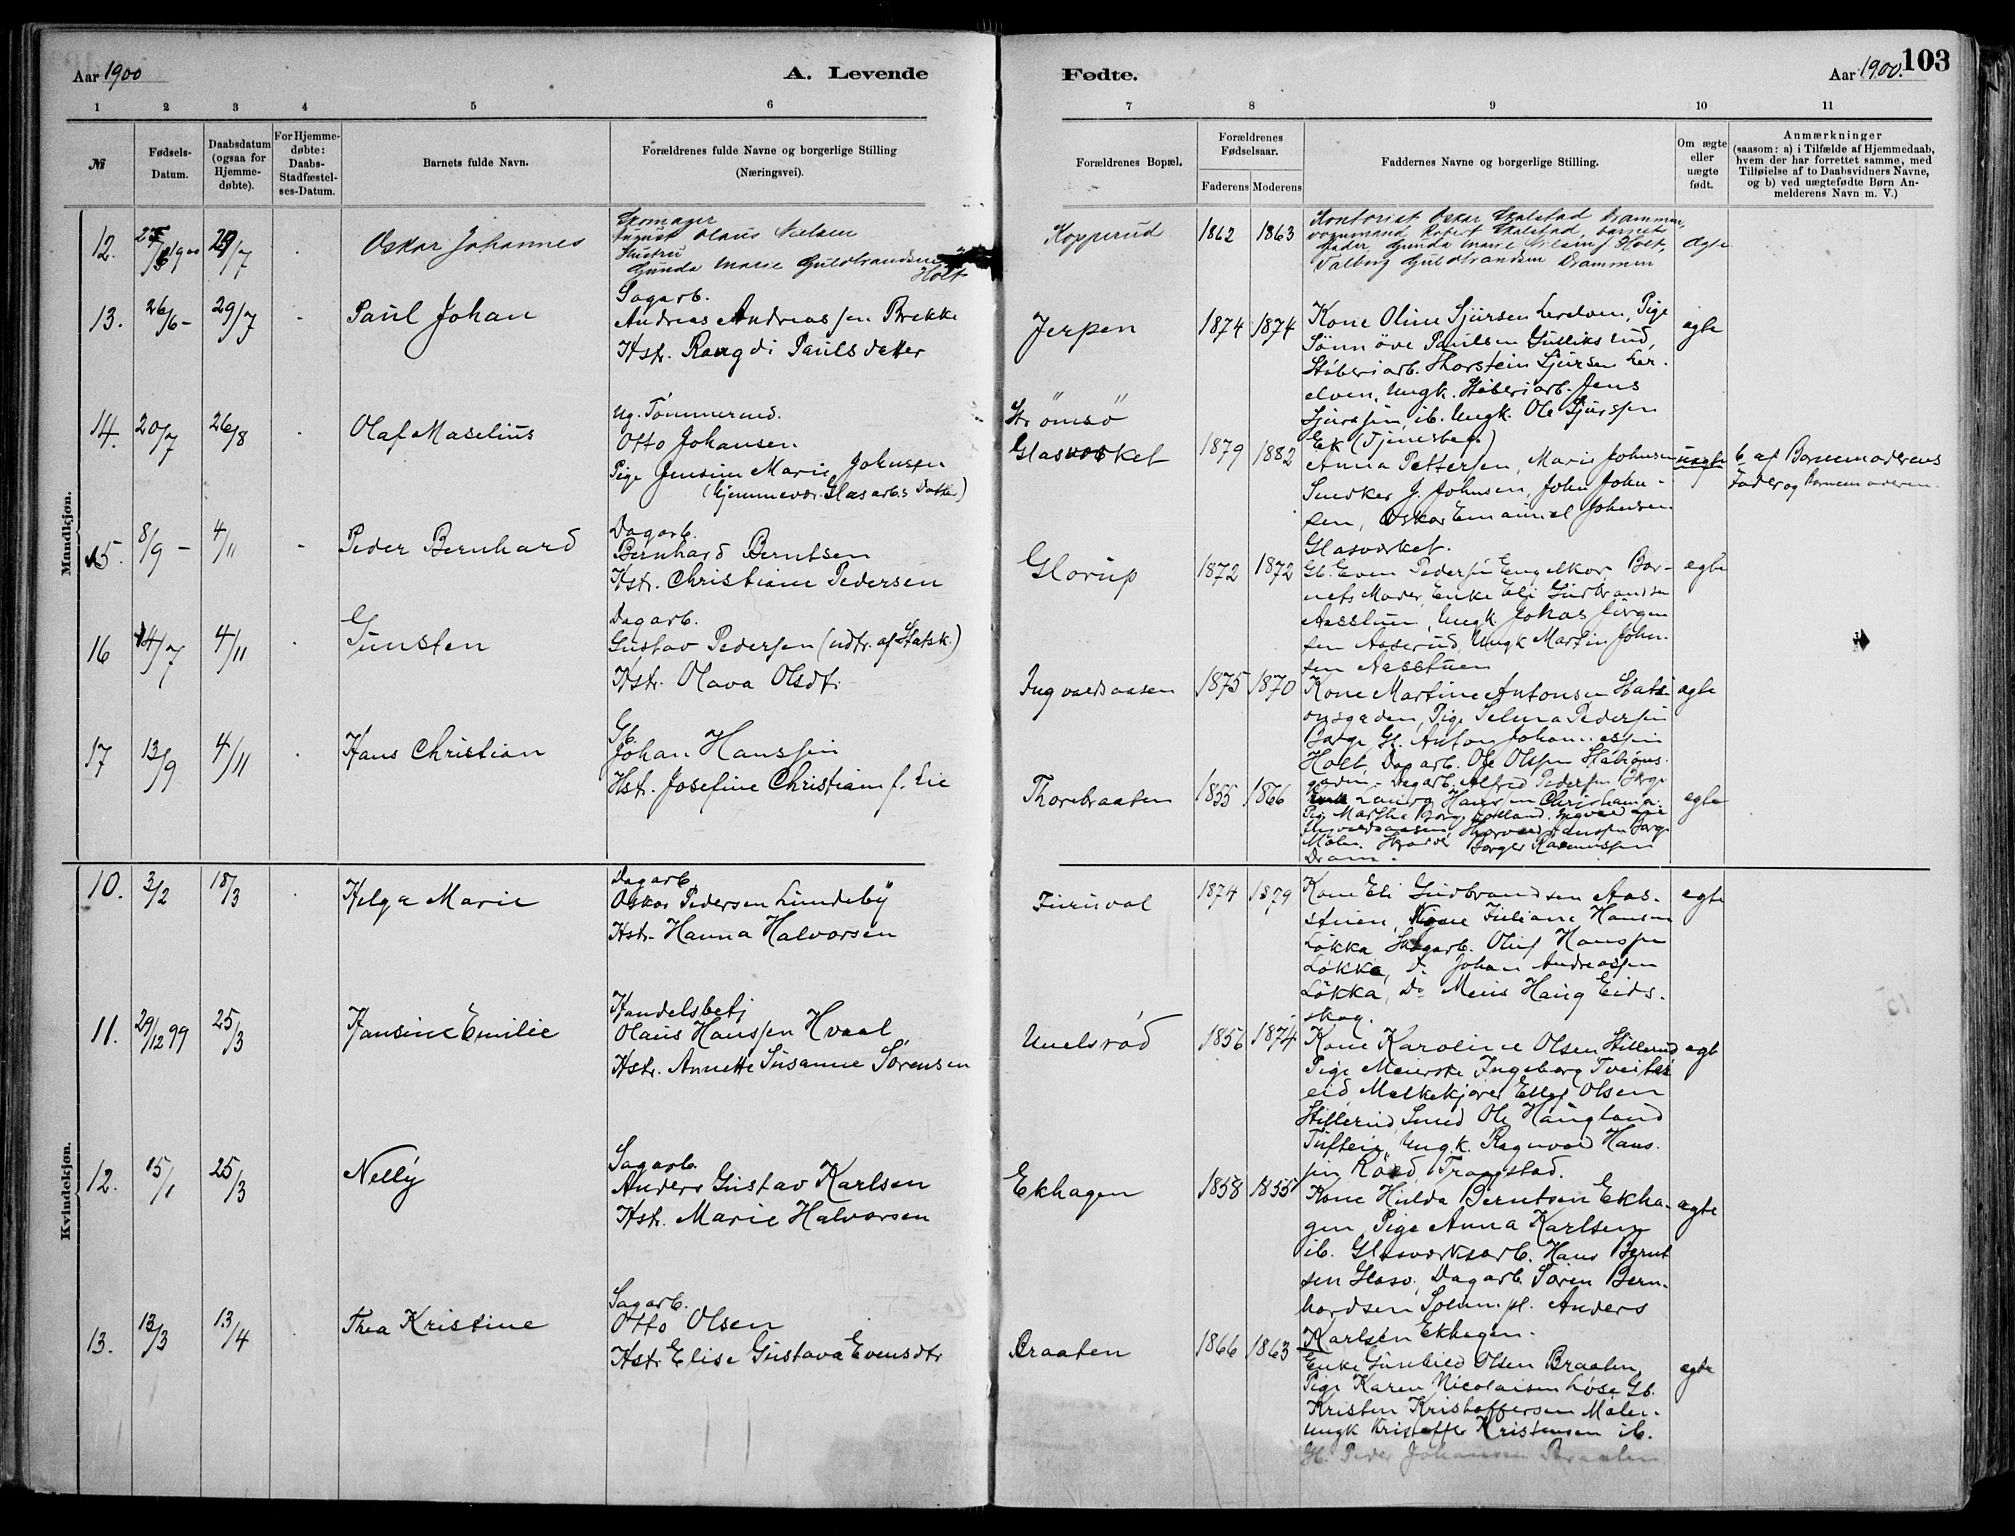 Aar 1900
A. Levende
Fødte.
Aar 1900.
103
1 2 3 4 5 6 7 8 9 10 11
№
Fødsels-
Datum.
Daabsdatum
(ogsaa for
Hjemme-
døbte).
For Hjemme-
døbte:
Daabs-
Stadfæstel-
ses-Datum.
Barnets fulde Navn.
Forældrenes fulde Navne og borgerlige Stilling
(Næringsvei).
Forældrenes Bopæl.
Forældrenes
Fødselsaar.
Faderens Moderens
Faddernes Navne og borgerlige Stilling.
Om ægte
eller
uægte
født.
Anmærkninger
(saasom: a) i Tilfælde af Hjemmedaab,
hvem der har forrettet samme, med
Tilføielse af to Daabsvidners Navne,
og b) ved uægtefødte Børn An-
melderens Navn m. V.)
Mandkjøn.
12. 29/7 Oskar Johannes
Skomager
August Olaus Nielsen
Hustru
Gunda Marie Guldbrandsen
Holt
Kopperud 1862 1863
Kontorist Oskar Skalstad Drammen,
Robert Skalstad, barnets
Fader, Gunda Marie Nilsen f. Holt,
Valborg Guldbrandsen Drammen
ægte
13. 26/6 - 29/7 - Paul Johan
Sagarb.
Andreas Andreassen Brekke
Hstr. Rangdi Paulsdatter
Jerpen 1874 1874
Kone Oline Sjursen Lerelven, Pige
Sønnøve Paulsen Gulliksrud,
Støberiarb. Thorstein Sjursen Ler-
elven, Ungk. Støberiarb. Jens
Sjurssen, ib. Ungk. Ole Sjurssen
Ek (Tjenesberg)
egte
14. 20/7 26/8 - Olaf Maselius
Ug. Tømmermd.
Otto Johansen
Pige Jensine Marie Johnsen
(hjemmevær. Glasarbs Datter)
Strømsø
Glasværket 1879 1882
Anna Pettersen, Marie Johnsen
Snedker J. Johnsen, John John-
sen, Oskar Emanuel Johnsen
Glasværket.
uægte
b af Barnemoderens
Fader og Barnemoderen.
15. 8/9 - 4/11 - Peder Bernhard
Dagarb.
Bernhard Berntsen
Hstr. Christiane Pedersen
Glorup 1872 1872
Gb. Even Pedersen Engelkor Bar-
nets Moder, Enke Eli Gudbrandsen
Aasstuen, Ungk. Johas Jørgen
sen Aaserud, Ungk Martin John-
sen Aasstuen
egte
16 14/7 4/11 - Gunsten
Dagarb.
Gustav Pedersen (udtr. af Statsk.)
Hstr. Olava Olsdt.
Ingvaldsaasen 1875 1870
Kone Martine Antonsen Stati
onsgaden, Pige Selma Pedersen
Berge Gb. Anton Johannessen
Holt, Dagarb. Ole Olsen Stations-
gaden - Dagarb. Alfred Pedersen Berge
egte
17 13/9 4/11 Hans Christian
Gb.
Johan Hanssen
Hstr. Josefine Christiane f. Lie
Thorebraaten 1855 1866
Hanssen Christiania.
Pig Martha
Ingvaldsaasen, Thorvald Hanssen Berge
Maler Borger Rasmussen
Dram.
egte
Kvindekjøn.
10. 3/2 18/3 - Helga Marie
Dagarb.
Oskar Pedersen Lundeby
Hstr. Hanna Halvorsen
Furuval 1874 1879
Kone Eli Gudbrandsen Aas-
stuen, Kone Juliane Hansen
Løkka Skogarb. Oluf Hanssen
Løkka, Do Johan Andreassen
Løkka, Do Meius Haug Eids-
skog.
egte
11. 29/12 99 25/3 Hansine Emilie
Handelsbetj
Olaus Hanssen Hvaal
Hstr. Annette Susanne Sørensen
Unelsrød 1856 1874
Kone Karoline Olsen Stillerud
Pige Meierske Ingeborg Tveiter
eid, Melkekjører Ellef Olsen
Stillerud, Smed Ole Haugland
Tuftein, Ungk. Ragnvald Hans-
sen Røed, Trøgstad.
egte
12. 15/1 25/3 Nelly
Sagarb.
Anders Gustav Karlsen
Hstr. Marie Halvorsen
Ekhagen 1858 1855
Kone Hulda Berntsen Ekha-
gen, Pige Anna Karlsen
ib. Glasværksarb. Hans Bernt
sen Glasv, Dagarb. Søren Bern-
hardsen Solum pl. Anders
Karlsen Ekhagen.
egte
13. 13/3 13/4 - Thea Kristine
Sagarb.
Otto Olsen
Hstr Elise Gustava Evensdtr
Braaten 1866 1863
Enke Gunhild Olsen Braaten
Pige Karen Nicolaisen Løse Gb.
Kristen Kristoffersen Malen.
Ungk Kristoffer Kristensen ib.
Gb. Peder Johansen Braaten
egte